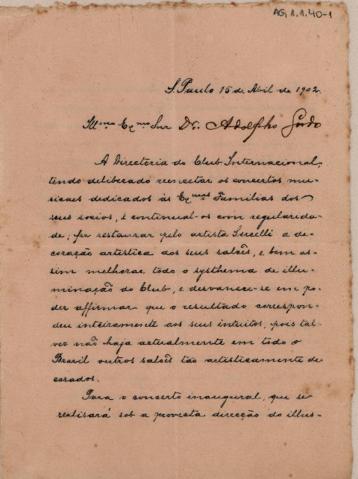 AG.1.1.40-1
S. Paulo 15 de Abril de 1902.
Illmo Exmo Snr Dr. Adolpho Gordo
A Directoria do Club Internacional,
tendo deliberado reencetar os concertos mu-
sicaes dedicados às Exmas Familias dos
seus socios, e continual-os com regularida-
de, fez restaurar pelo artista a de-
coração artistica dos seus salões, e bem as-
sim melhorar todo o systhema de illu-
minação do Club, e desvanece-se em po-
der affirmar que o resultado correspon-
deu inteiramente aos seus intuitos, pois tal-
vez não haja actualmente em todo o
Brazil outros salões tão artisticamente de-
corados.
Para o concerto inaugural, que se
realisará sob a provecta direcção do illus-